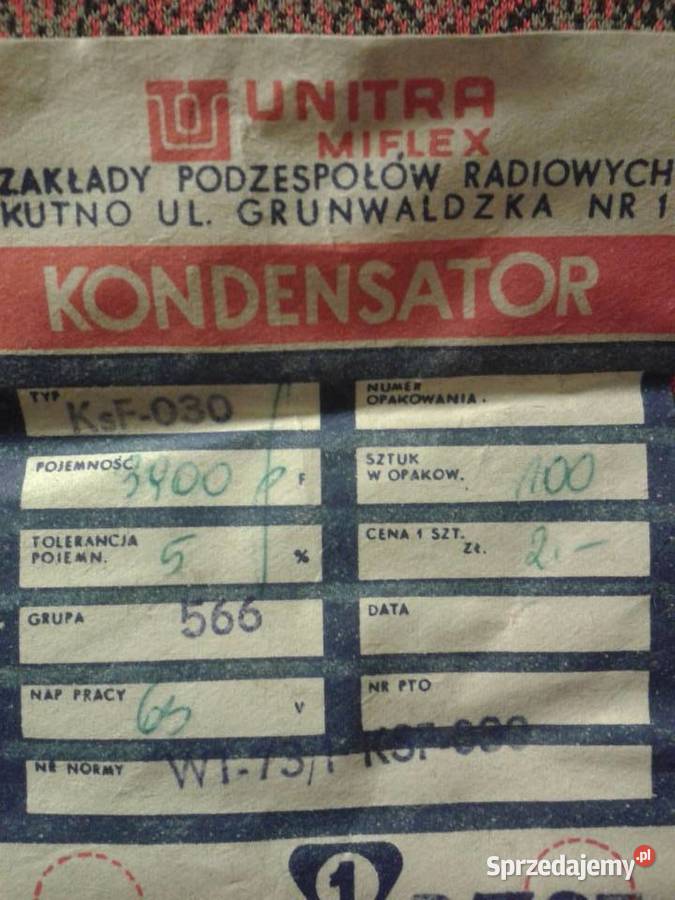 UNITRA
MIFLEX
ZAKŁADY PODZESPOŁÓW RADIOWYCH
KUTNO UL. GRUNWALDZKA NR 1
KONDENSATOR
TYP KsF-030
NUMER OPAKOWANIA.
POJEMNOŚĆ 3400 p F
SZTUK W OPAKOW. 100
TOLERANCJA POJEMN. 5 %
CENA 1 SZT. ZŁ. 2.-
GRUPA 566
DATA
NAP PRACY 63 V
NR PTO
NR NORMY WT-73/1 KSF-030
1
Sprzedajemy.pl